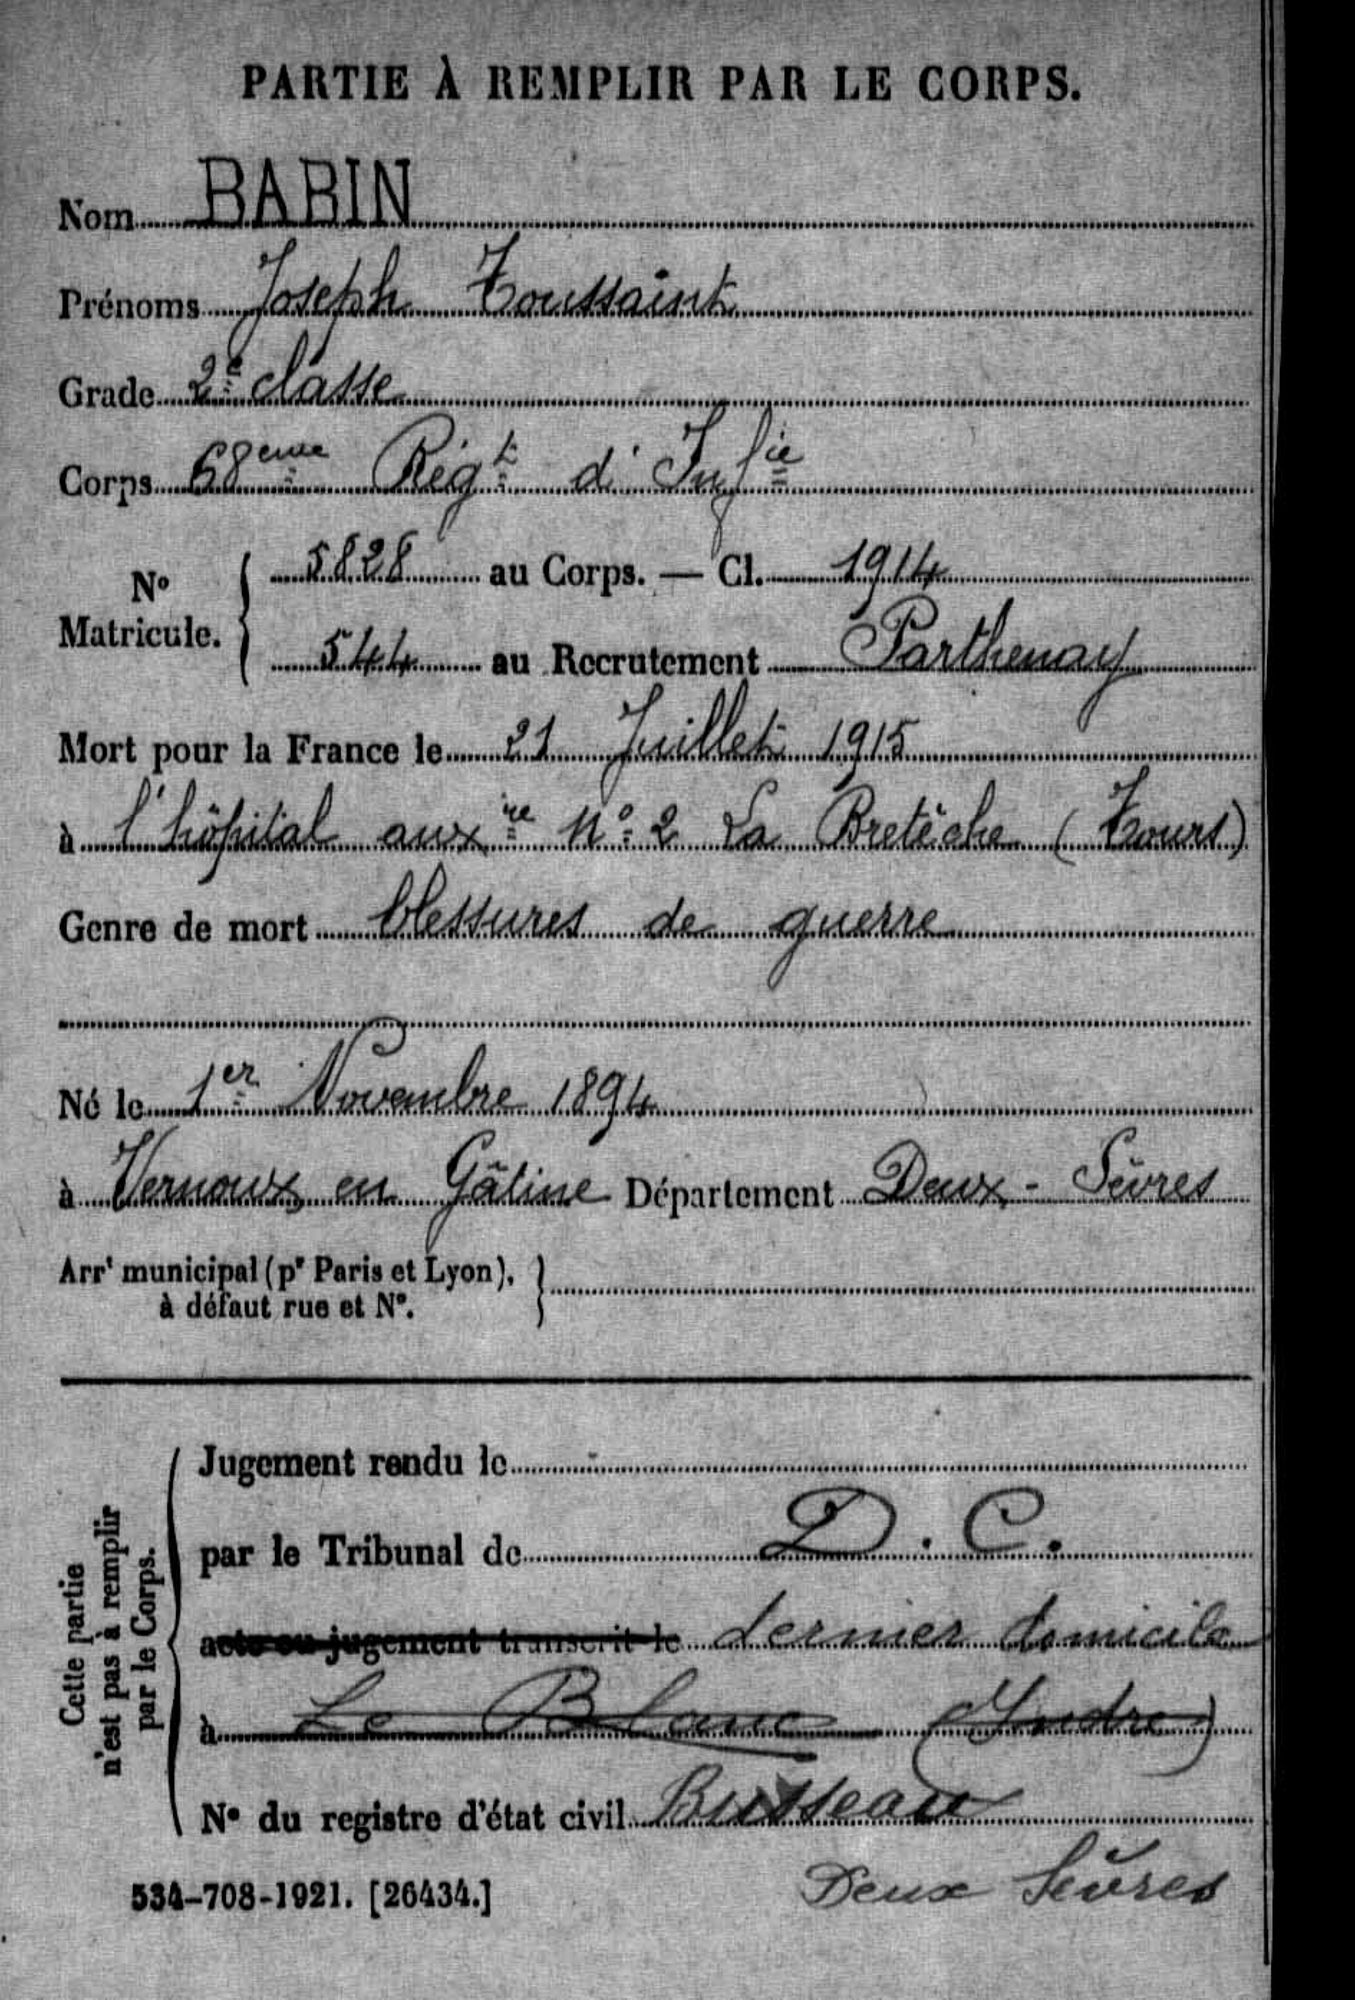 PARTIE À REMPLIR PAR LE CORPS.
Nom BABIN
Prénoms Joseph Toussaint
Grade 2e classe
Corps 68eme Régt d'Infie
No Matricule. { 5828 au Corps. — Cl. 1914
544 au Recrutement Parthenay
Mort pour la France le 21 Juillet 1915
à l'hôpital auxre No 2 La Bretêche (Tours)
Genre de mort blessures de guerre
Né le 1er Novembre 1894
à Vernoux en Gâtine Département Deux-Sèvres
Arrt municipal (pr Paris et Lyon), }
à défaut rue et No.
Cette partie
n'est pas à remplir
par le Corps.
Jugement rendu le
par le Tribunal de D. C.
acte ou jugement transcrit le dernier domicile
à Le Blanc (Indre)
No du registre d'état civil Busseau
Deux Sèvres
534-708-1921. [26434.]